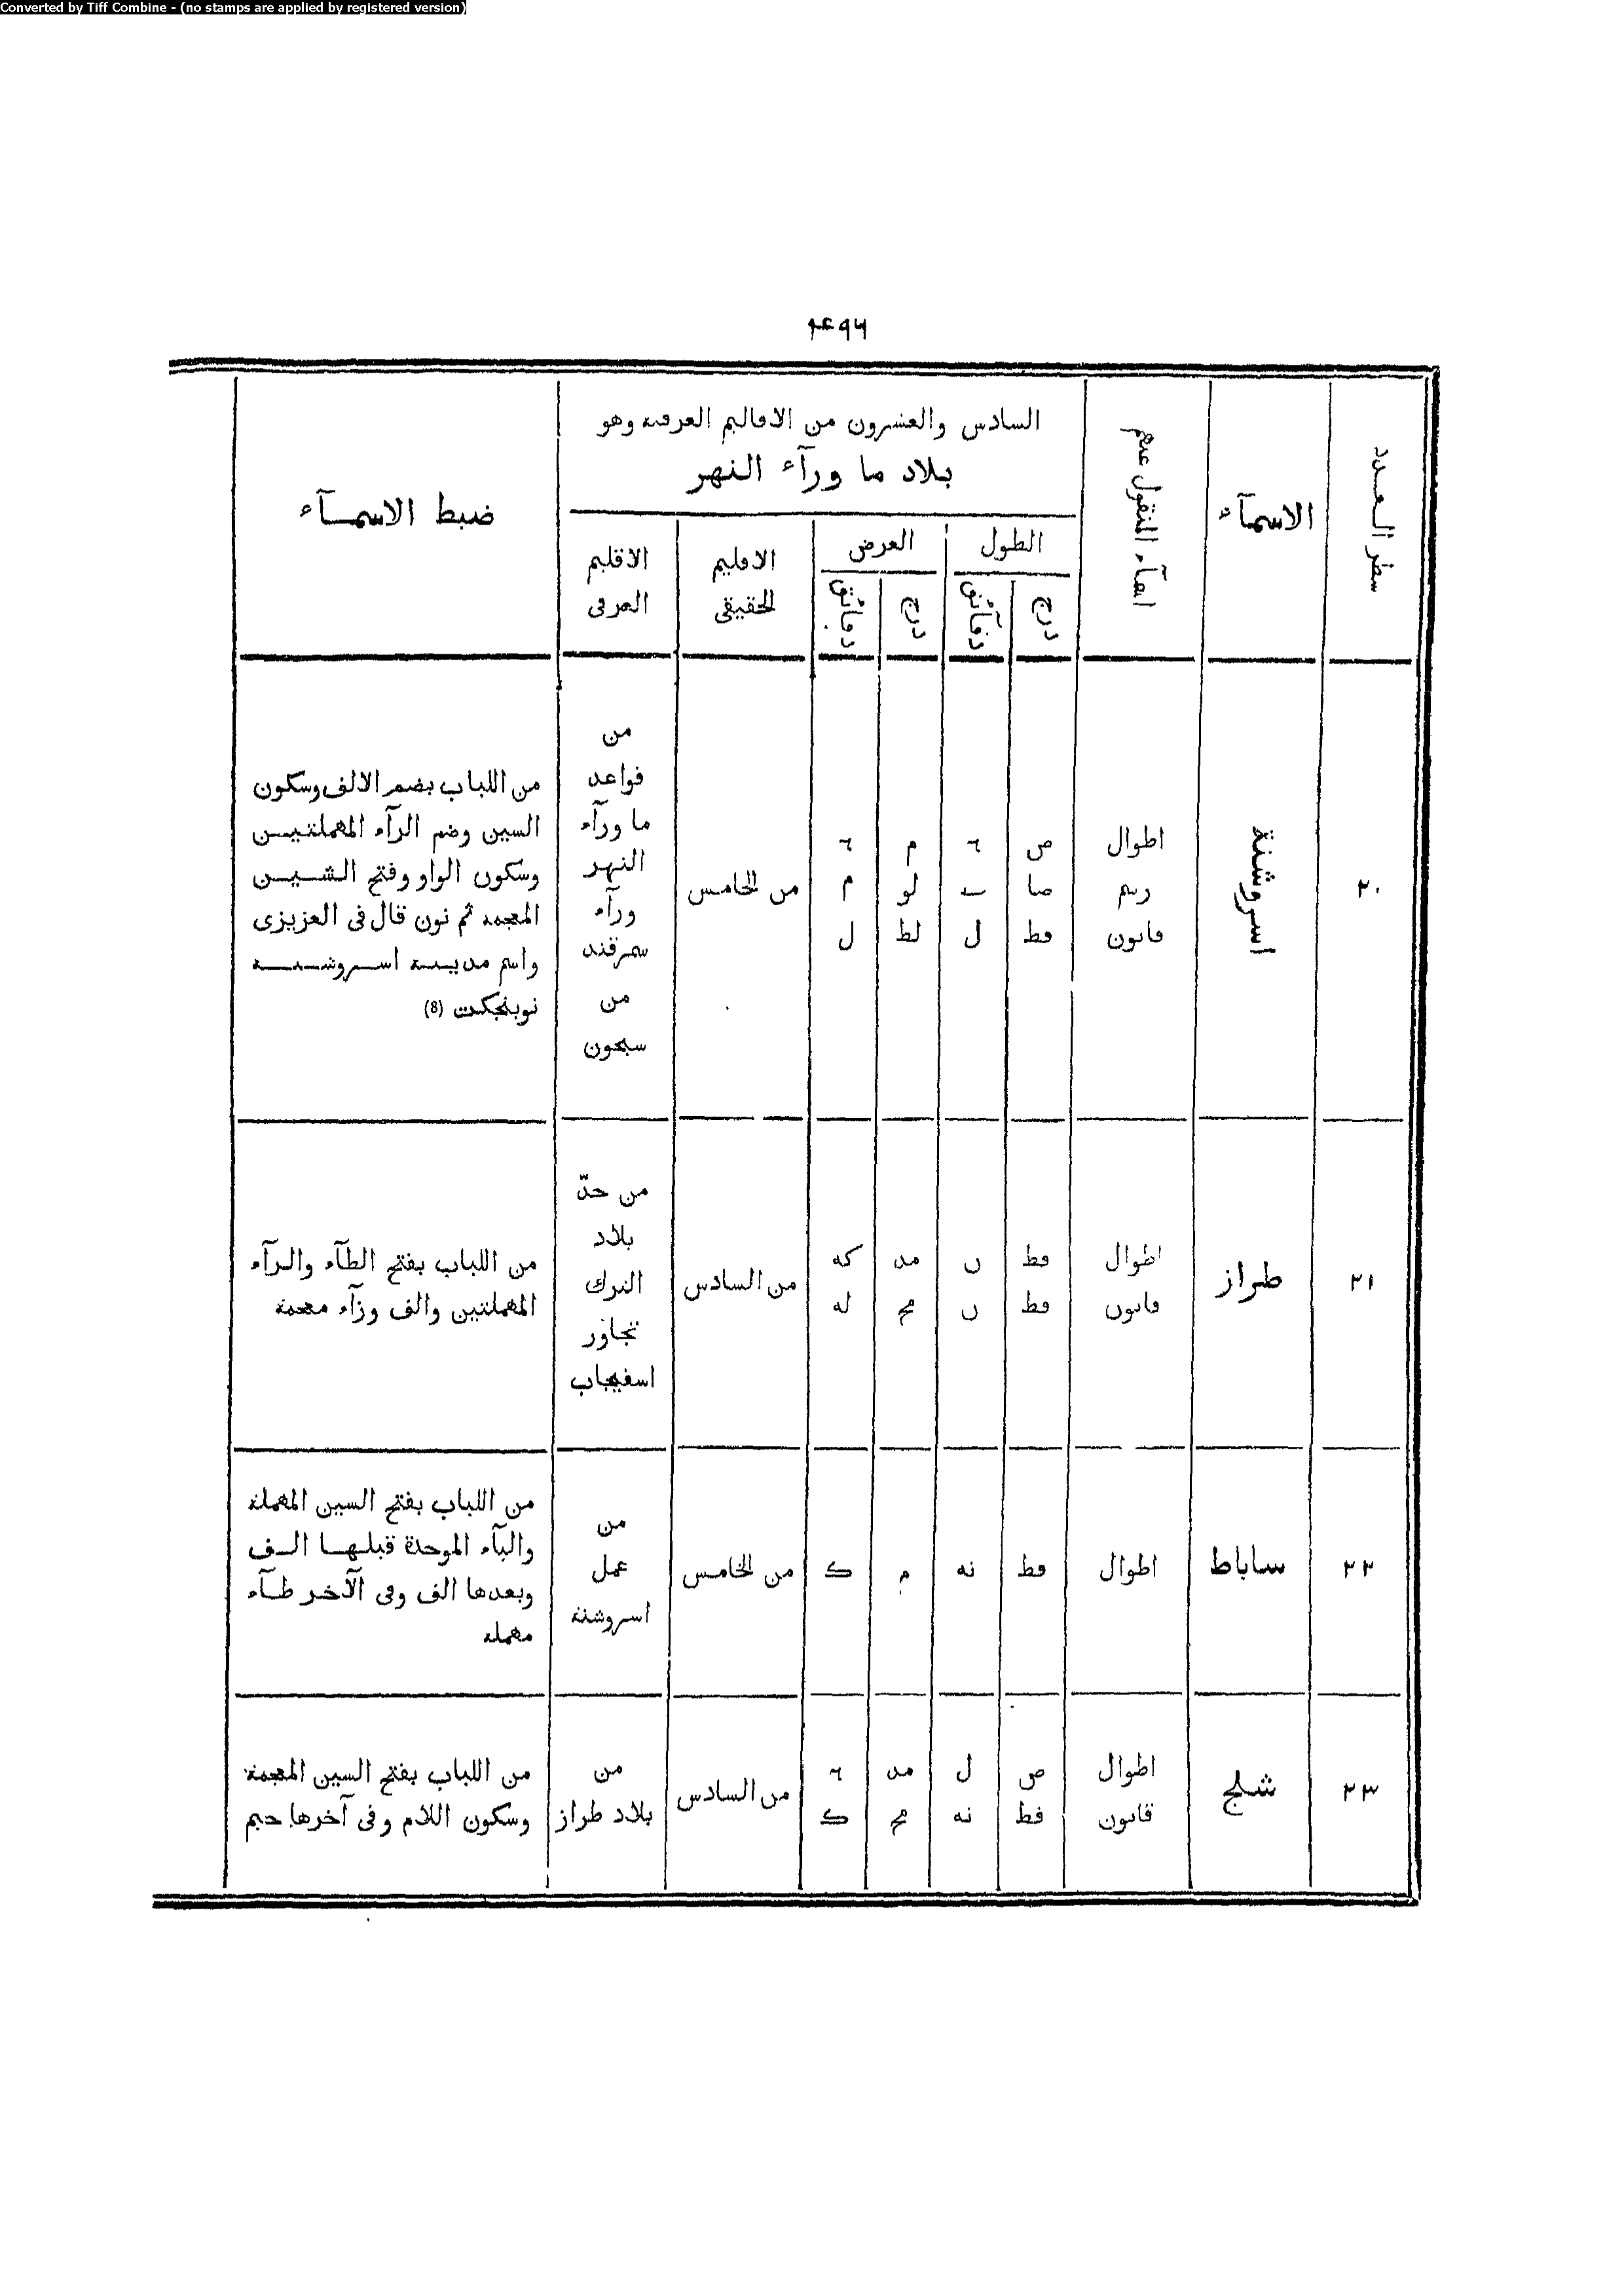 Converted by Tiff Combine - (no stamps are applied by registered version)
۴۹۶
سطر العدد
الاسمآء
اسمآء المنقول عنهم
السادس والعشرون من الاقاليم العرفية وهو
بلاد ما ورآء النهر
الطول
درج
دقآئق
العرض
درج
دقائق
الاقليم
الحقيقى
الاقليم
العرفى
ضبط الاسمآء
٢٠
اسروشنة
اطوال
رسم
قانون
ص
صا
فط
ل
م
لو
لط
م
ل
من الخامس
من
قواعد
ما ورآء
النهر
ورآء
سمرقند
من
سيحون
من اللباب بضم الالف وسكون
السين وضم الرآء المهملتين
وسكون الواو وفتح الشين
المعجمة ثم نون قال فى العزيزى
واسم مدينة اسروشنة
نوبنجكت (8)
٢١
طراز
اطوال
قانون
فط
فط
ن
ن
مد
مج
كه
له
من السادس
من حدّ
بلاد
الترك
تجاور
اسفيجاب
من اللباب بفتح الطآء والرآء
المهملتين والف وزآء معجمة
٢٢
ساباط
اطوال
فط
نه
م
ك
من الخامس
من
عمل
اسروشنة
من اللباب بفتح السين المهملة
والبآء الموحدة قبلها الف
وبعدها الف وفى الآخر طآء
مهملة
٢٣
شلج
اطوال
قانون
ص
فط
ل
نه
مد
مج
ك
من السادس
من
بلاد طراز
من اللباب بفتح السين المعجمة
وسكون اللام وفى آخرها جيم